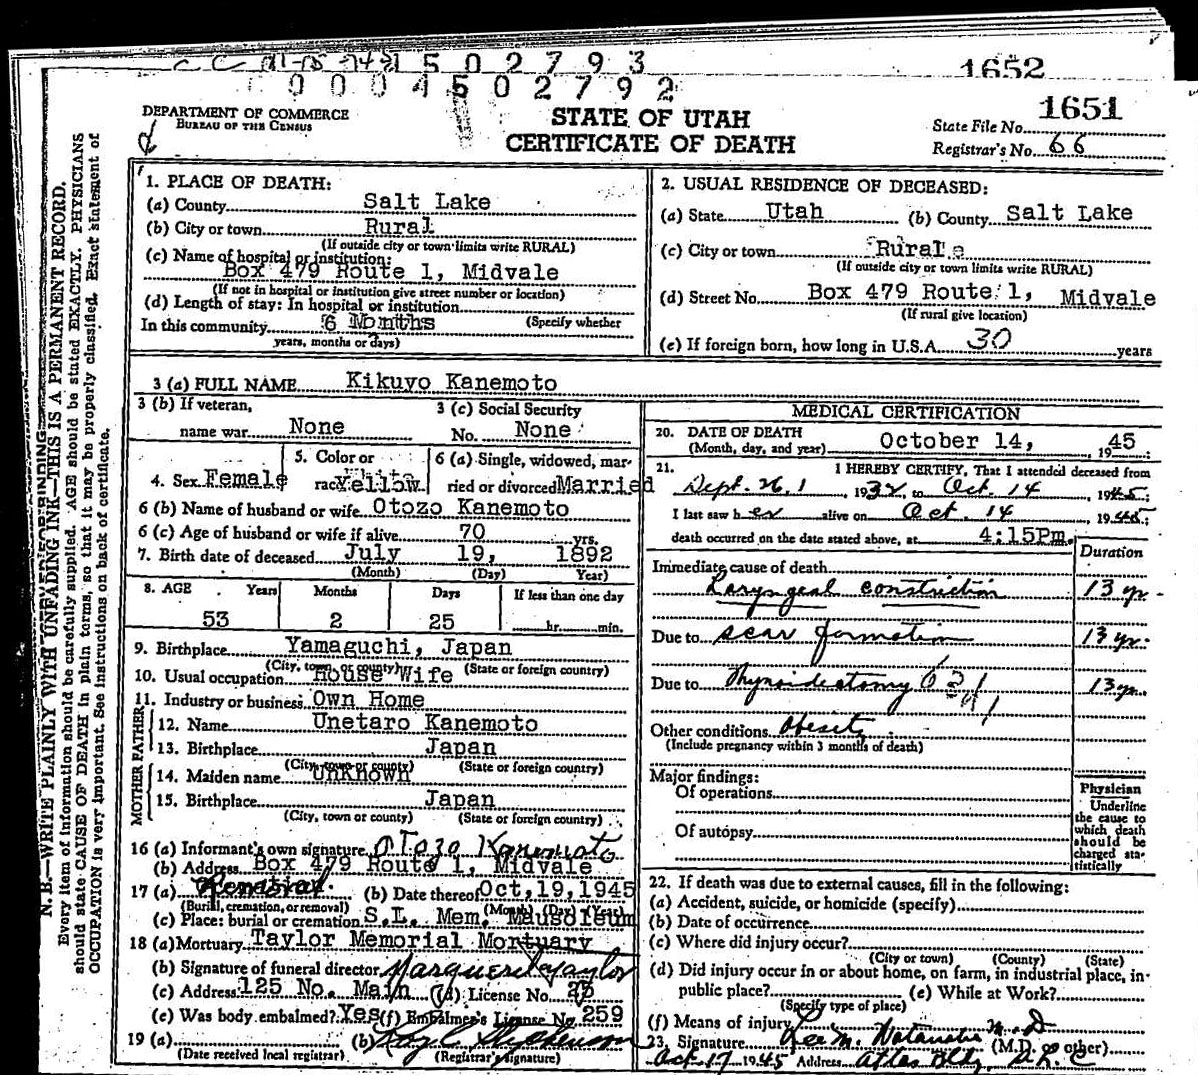 1502793
0004502792
1652
1651
DEPARTMENT OF COMMERCE
BUREAU OF THE CENSUS
STATE OF UTAH
CERTIFICATE OF DEATH
State File No.
Registrar's No. 66
N. B.—WRITE PLAINLY WITH UNFADING INK—THIS IS A PERMANENT RECORD.
Every item of information should be carefully supplied. AGE should be stated EXACTLY. PHYSICIANS
should state CAUSE OF DEATH in plain terms, so that it may be properly classified. Exact statement of
OCCUPATION is very important. See instructions on back of certificate.
1. PLACE OF DEATH:
(a) County Salt Lake
(b) City or town Rural
(If outside city or town limits write RURAL)
(c) Name of hospital or institution:
Box 479 Route 1, Midvale
(If not in hospital or institution give street number or location)
(d) Length of stay: In hospital or institution
In this community 6 Months (Specify whether
years, months or days)
2. USUAL RESIDENCE OF DECEASED:
(a) State Utah (b) County Salt Lake
(c) City or town Rural
(If outside city or town limits write RURAL)
(d) Street No. Box 479 Route 1, Midvale
(If rural give location)
(e) If foreign born, how long in U.S.A. 30 years
3 (a) FULL NAME Kikuyo Kanemoto
3 (b) If veteran, 3 (c) Social Security
name war None No. None
4. Sex Female 5. Color or race Yellow 6 (a) Single, widowed, married or divorced Married
6 (b) Name of husband or wife Otozo Kanemoto
6 (c) Age of husband or wife if alive 70 yrs.
7. Birth date of deceased July 19, 1892
(Month) (Day) Year)
8. AGE Years Months Days If less than one day
53 2 25 hr. min.
9. Birthplace Yamaguchi, Japan
(City, town, or county) (State or foreign country)
10. Usual occupation House Wife
11. Industry or business Own Home
FATHER
12. Name Unetaro Kanemoto
13. Birthplace Japan
(City, town or county) (State or foreign country)
MOTHER
14. Maiden name Unknown
15. Birthplace Japan
(City, town or county) (State or foreign country)
16 (a) Informant's own signature Otozo Kanemoto
(b) Address Box 479 Route 1, Midvale
17 (a) (b) Date thereof Oct, 19, 1945
(Burial, cremation, or removal) (Month) (Day) (Year)
(c) Place: burial or cremation S.L. Mem. Mausoleum
18 (a) Mortuary Taylor Memorial Mortuary
(b) Signature of funeral director Marguerite Taylor
(c) Address 125 No. Main (d) License No.
(e) Was body embalmed? Yes (f) Embalmer's License No. 259
19 (a) (b)
(Date received local registrar) (Registrar's signature)
MEDICAL CERTIFICATION
20. DATE OF DEATH
(Month, day, and year) October 14, 1945
21. I HEREBY CERTIFY, That I attended deceased from
Sept. 26, 1932, to Oct. 14, 1945;
I last saw her alive on Oct. 14 1945;
death occurred on the date stated above, at 4:15Pm.
Duration
Immediate cause of death
Laryngeal constriction 13 yr.
Due to scar formation 13 yr.
Due to Thyroidectomy 13 yr.
Other conditions Obesity
(Include pregnancy within 3 months of death)
Major findings:
Of operations
Of autopsy
Physician
Underline
the cause to
which death
should be
charged sta-
tistically
22. If death was due to external causes, fill in the following:
(a) Accident, suicide, or homicide (specify)
(b) Date of occurrence
(c) Where did injury occur?
(City or town) (County) (State)
(d) Did injury occur in or about home, on farm, in industrial place, in
public place? (e) While at Work?
(Specify type of place)
(f) Means of injury
23. Signature Lee M. Watanabe M.D (M.D. or other)
Oct 17, 1945 Address Atlas Bldg S.L.C